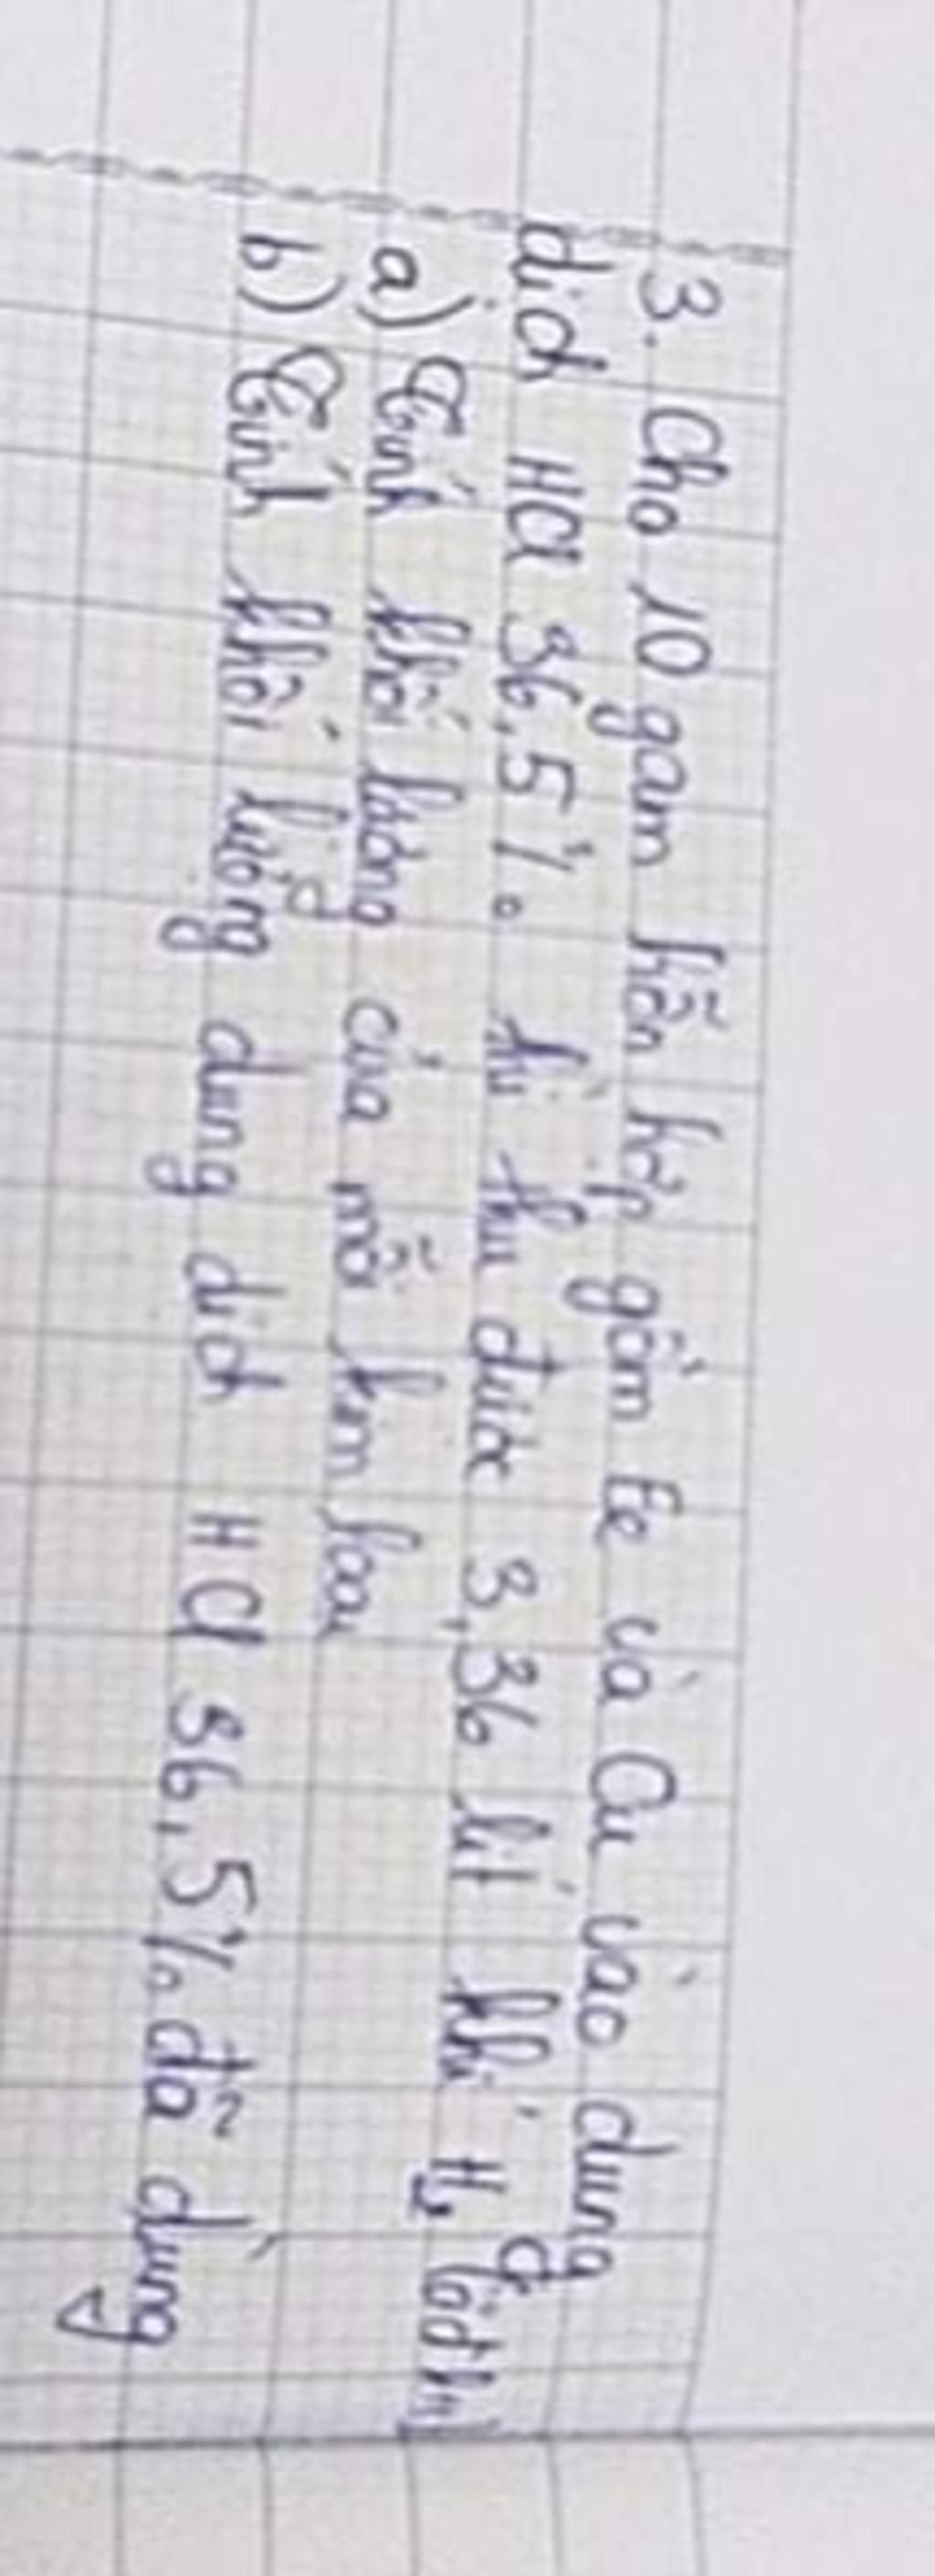 3. Cho 10 gam hỗn hợp gồm Fe và Cu vào dung
dịch HCl 36,5% dư thu được 3,36 lít khí H₂ (ở đktc)
a) Tính khối lượng của mỗi kim loại
b) Tính khối lượng dung dịch HCl 36,5% đã dùng